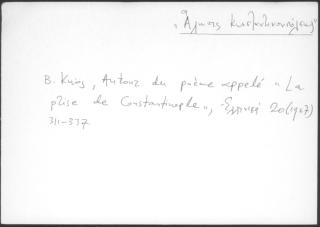 „Ἅλωσις Κωνσταντινουπόλεως"
B. Knös, Autour du poème appelé "La
prise de Constantinople", Ἑλληνικά 20 (1967)
311-337